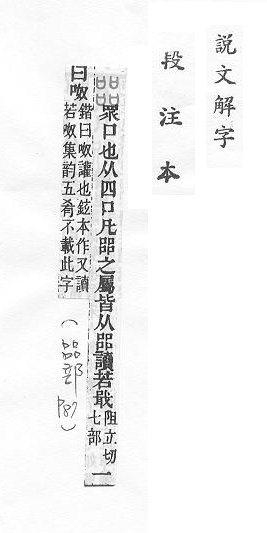 說文解字
段注本
㗊眾口也从四口凡㗊之屬皆从㗊讀若戢阻立切
七部
一
曰呶鍇曰呶讙也鉉本作又讀
若呶集韵五肴不載此字
(㗊部 P87)